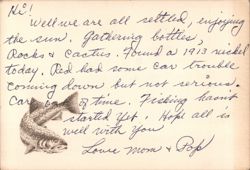 Hi!
Well we are all settled, enjoying
the sun. Gathering bottles,
Rocks & Cactus. Found a 1913 nickel
today. Red had some car trouble
coming down but not serious.
Car of time. Fishing hasn't
started yet. Hope all is
well with you
Love Mom & Pop